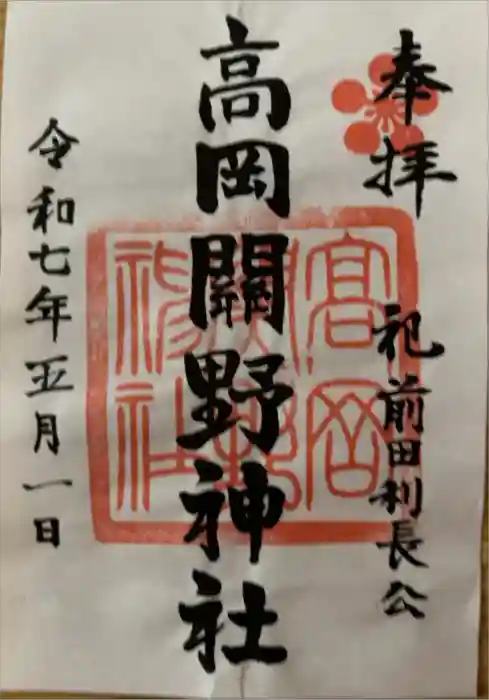 奉拝
祀前田利長公
高岡關野神社
令和七年五月一日
高岡
關野
神社